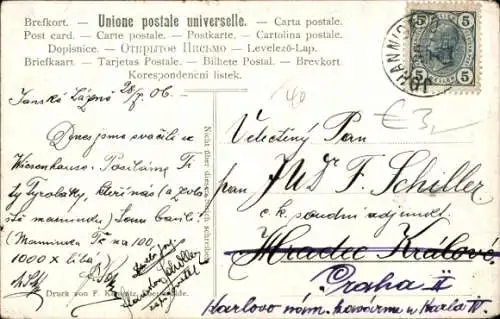 Brefkort. - Unione postale universelle. - Carta postale.
Post card. - Carte postale. - Postkarte. - Cartolina postale.
Dopisnice. - Открытое Письмо - Levelező-Lap.
Briefkaart - Tarjetas Postale. - Bilhete Postal. - Brevkort
Korespondenční listek.
5 5
5 5
JOHANNISB
Janské Lázně 28/7 06.
40
€ 3,-
Dnes jsme svačili u
Wiesenhause. Posíláme Ti
ty Tyroláky, kteří nás (a zvlá
ště maminku)
(Maminka Tě na 100,
1000 x líbá)
Nicht über diesen Strich schreiben
Velectěný Pan
pan JUDr F. Schiller
c. k. soudní adjunkt
Hradec Králové
Praha II
Karlovo nám. kavárna u Karla IV.
Druck von F.